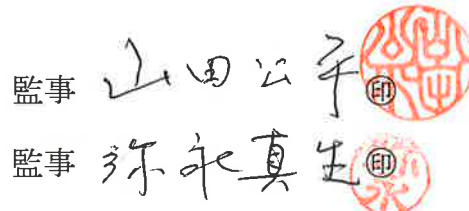 監事 山田公平 ㊞
監事 弥永真生 ㊞